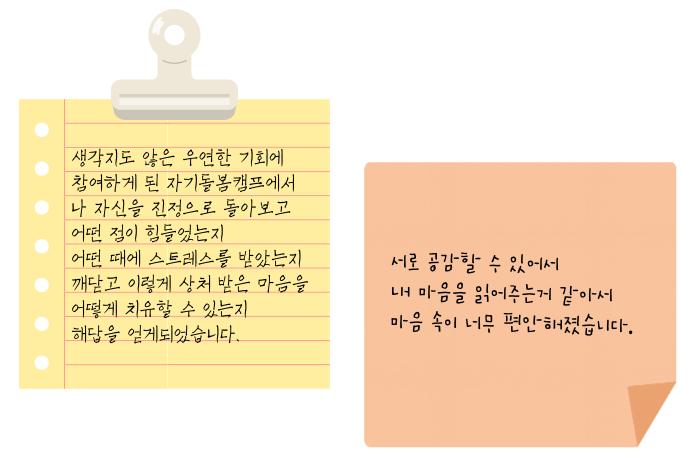 생각지도 않은 우연한 기회에
참여하게 된 자기돌봄캠프에서
나 자신을 진정으로 돌아보고
어떤 점이 힘들었는지
어떤 때에 스트레스를 받았는지
깨닫고 이렇게 상처 받은 마음을
어떻게 치유할 수 있는지
해답을 얻게되었습니다.
서로 공감할 수 있어서
내 마음을 읽어주는거 같아서
마음 속이 너무 편안해졌습니다.